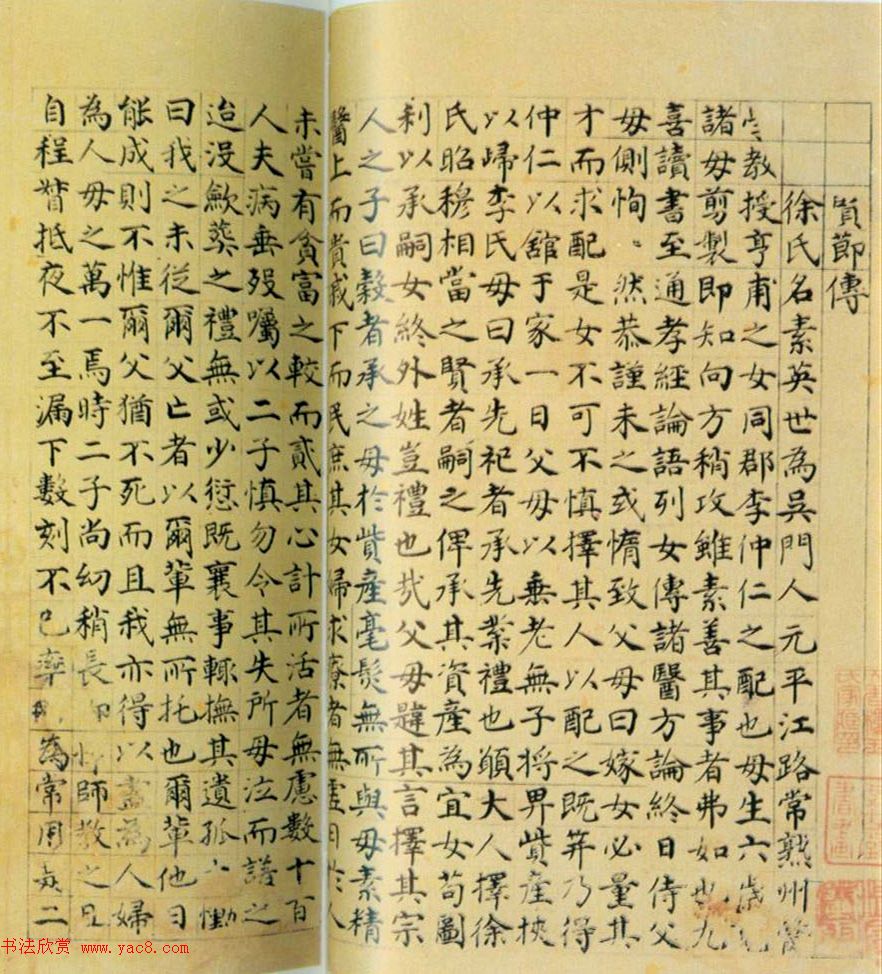 節傳
徐氏名素英世為吳門人元平江路常熟州
教授亨甫之女同郡李仲仁之配也母生六歲
諸母剪製即知向方稍攻雖素善其事者弗如也九
喜讀書至通孝經論語列女傳諸醫方論終日侍父
母側恂〻然恭謹未之或惰致父母曰嫁女必量其
才而求配是女不可不慎擇其人以配之既笄乃得
仲仁以舘于家一日父母以垂老無子將畀貲產挾
以歸李氏母曰承先祀者承先業禮也願大人擇徐
氏昭穆相當之賢者嗣之俾承其資產為宜女苟圖
利以承嗣女終外姓豈禮也哉父母韙其言擇其宗
人之子曰穀者承之母於貲產毫髮無所與母素精
醫上而貴戚下而民庶其女婦求療者無虛日於人
未嘗有貧富之較而貳其心計所活者無慮數十百
人夫病垂歿囑以二子慎勿令其失所母泣而諾之
迨沒歛葬之禮無或少愆既襄事輒撫其遺孤慟
曰我之未從爾父亡者以爾輩無所托也爾輩他日
能成則不惟爾父猶不死而且我亦得以盡為人婦
為人母之萬一焉時二子尚幼稍長師教之
自程督抵夜不至漏下數刻不已率為常用是二
書畫
书法欣赏 www.yac8.com